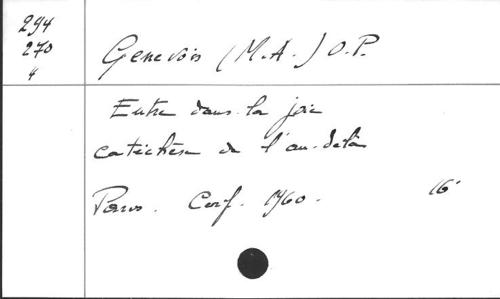 294
270
4
Genevois (M.A.) O.P.
Entre dans la joie
catéchèse de l'au-delà
Paris. Cerf. 1960. 16°